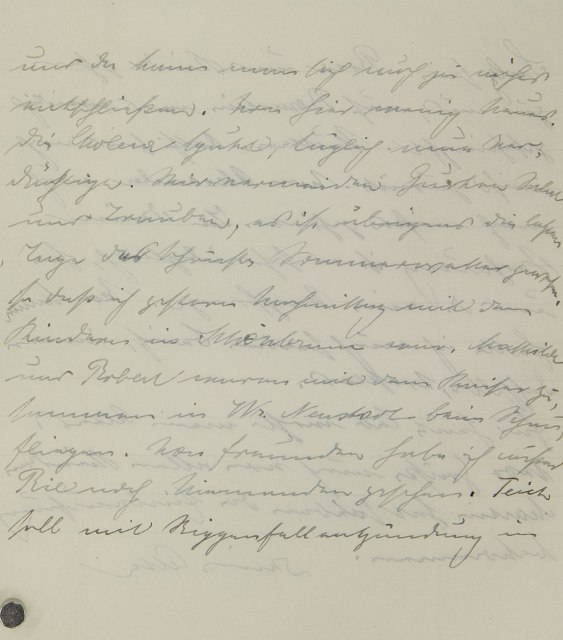 und du kannst nun dich noch zu nichts
entschließen. Von hier wenig Neues.
Die Cholera spukt, täglich neue Ver-
dächtige. Wir vermeiden Gurken Salat
und Trauben, es ist übrigens die letzten
Tage das schönste Sommerwetter gewesen.
so daß ich gestern Nachmittag mit den
Kindern in Schönbrunn war. Mathilde
und Robert waren mit dem Kaiser zu-
sammen in Wr. Neustadt beim Schau-
fliegen. Von Freunden habe ich außer
Rie noch Niemanden gesehen. Teich
soll mit Rippenfellentzündung in